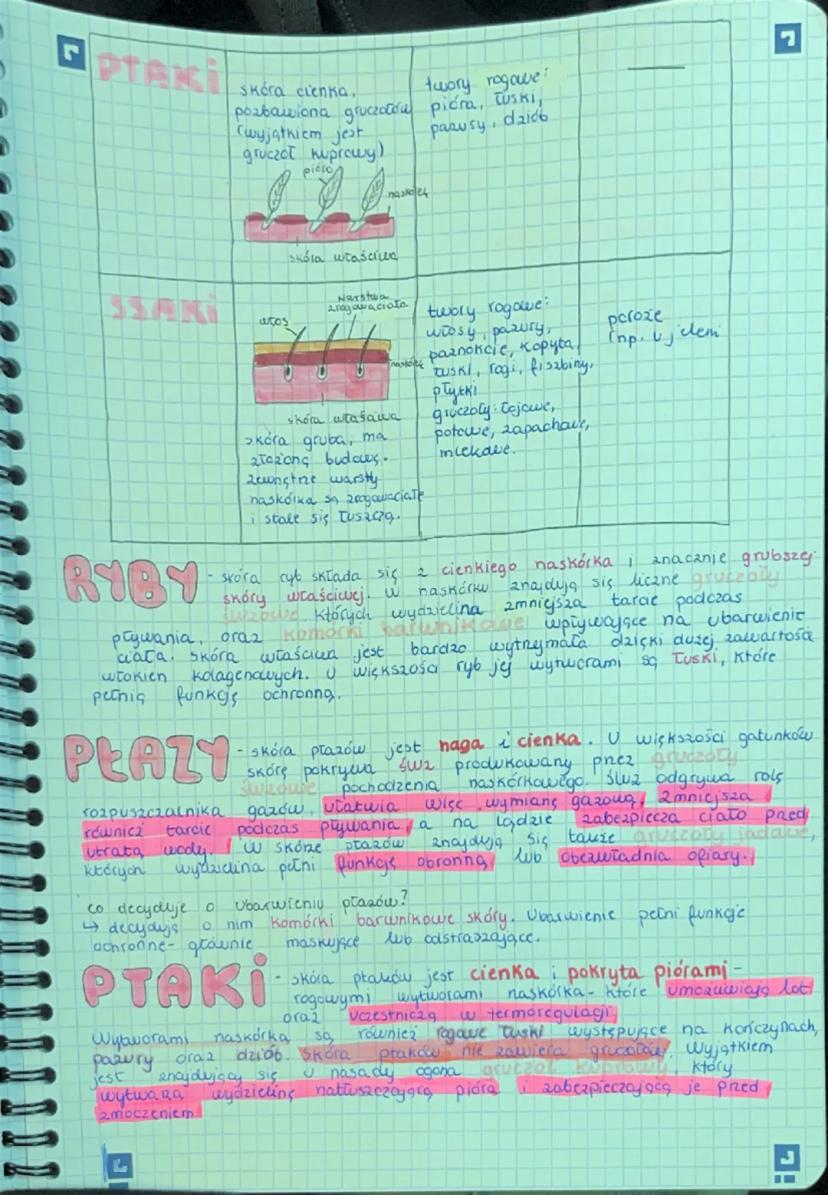 PTAKI
skóra cienka,
pozbawiona gruczołów
(wyjątkiem jest
gruczoł kuprowy)
pióro
naskórek
skóra właściwa
twory rogowe:
pióra, łuski,
pazury, dziób
SSAKI
warstwa
zrogowaciała
włos
naskórek
skóra właściwa
skóra gruba, ma
złożoną budowę.
zewnętrzne warsty
naskórka są zrogowaciałe
i stale się łuszczą.
twory rogowe:
włosy, pazury,
paznokcie, kopyta,
łuski, rogi, fiszbiny,
płytki
gruczoły: łojowe,
potowe, zapachowe,
mlekowe.
poroże
(np. u jeleni
RYBY - skóra ryb składa się z cienkiego naskórka i znacznie grubszej
skóry właściwej. W naskórku znajdują się liczne gruczoły
śluzowe których wydzielina zmniejsza tarcie podczas
pływania, oraz komórki barwnikowe wpływające na ubarwienie
ciała. Skóra właściwa jest bardzo wytrzymała dzięki dużej zawartości
włókien kolagenowych. U większości ryb jej wytworami są łuski, które
pełnią funkcję ochronną.
PŁAZY - skóra płazów jest naga i cienka. U większości gatunków
skórę pokrywa śluz produkowany przez gruczoły
śluzowe pochodzenia naskórkowego. śluz odgrywa rolę
rozpuszczalnika gazów, ułatwia więc wymianę gazową, zmniejsza
również tarcie podczas pływania, a na lądzie zabezpiecza ciało przed
utratą wody. W skórze płazów znajdują się także gruczoły jadowe,
których wydzielina pełni funkcję obronną lub obezwładnia ofiary.
co decyduje o ubarwieniu płazów?
↳ decydują o nim komórki barwnikowe skóry. Ubarwienie pełni funkcje
ochronne- głównie maskujące lub odstraszające.
PTAKI - skóra ptaków jest cienka i pokryta piórami-
rogowymi wytworami naskórka- które umożliwiają lot
oraz uczestniczą w termoregulacji.
Wytworami naskórka są również rogowe łuski występujące na kończynach,
pazury oraz dziób. Skóra ptaków nie zawiera gruczołów. Wyjątkiem
jest znajdujący się u nasady ogona gruczoł kuprowy, który
wytwarza wydzielinę natłuszczającą pióra i zabezpieczającą je przed
zmoczeniem.